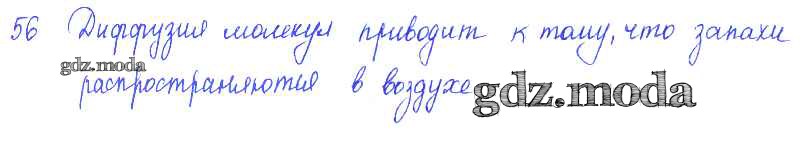 56 Диффузия молекул приводит к тому, что запахи
gdz.moda
распространяются в воздухе
gdz.moda